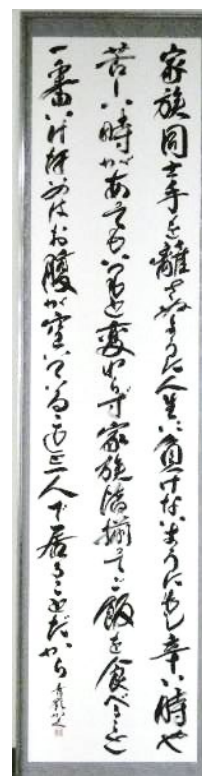 家族同士手を離さぬように人生に負けないようにもし辛い時や
苦しい時があってもいつもと変わらず家族皆揃ってご飯を食べること
一番いけないのはお腹が空いていることと一人で居ることだから